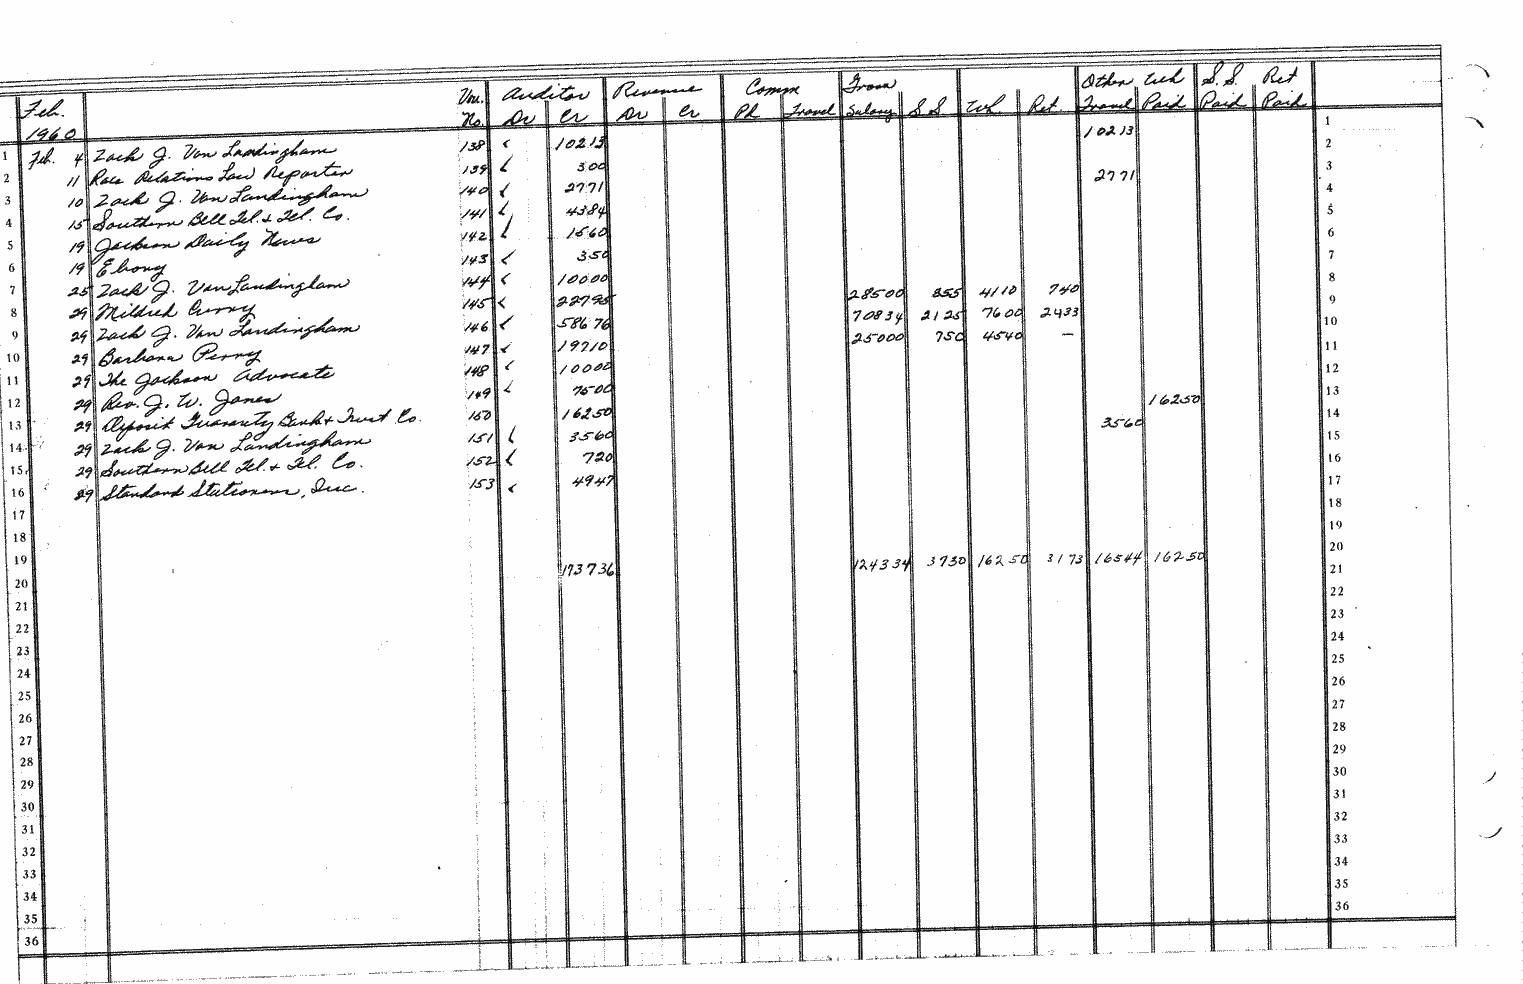 Feb. 1960 Vou. No. Auditor Dr Cr Revenue Dr Cr Comm Pd Travel Gross Salary S S Wh. Ret. Other Travel Wh Paid S. S. Paid Ret Paid
1 Feb. 4 Zack J. Van Landingham 138 ✓ 102 13 102 13 1
2 11 Race Relations Law Reporter 139 ✓ 3 00 2
3 10 Zack J. Van Landingham 140 ✓ 27 71 27 71 3
4 15 Southern Bell Tel. & Tel. Co. 141 ✓ 43 84 4
5 19 Jackson Daily News 142 ✓ 15 60 5
6 19 Ebony 143 ✓ 3 50 6
7 25 Zack J. Van Landingham 144 ✓ 100 00 7
8 29 Mildred Curry 145 ✓ 227 95 285 00 8 55 41 10 7 40 8
9 29 Zack J. Van Landingham 146 ✓ 586 76 708 34 21 25 76 00 24 33 9
10 29 Barbara Perry 147 ✓ 197 10 250 00 7 50 45 40 — 10
11 29 The Jackson Advocate 148 ✓ 100 00 11
12 29 Rev. J. W. Jones 149 ✓ 75 00 12
13 29 Deposit Guaranty Bank & Trust Co. 150 162 50 162 50 13
14 29 Zack J. Van Landingham 151 ✓ 35 60 35 60 14
15 29 Southern Bell Tel. & Tel. Co. 152 ✓ 7 20 15
16 29 Standard Stationers, Inc. 153 ✓ 49 47 16
17 17
18 18
19 19
20 1737 36 1243 34 37 30 162 50 31 73 165 44 162 50 20
21 21
22 22
23 23
24 24
25 25
26 26
27 27
28 28
29 29
30 30
31 31
32 32
33 33
34 34
35 35
36 36